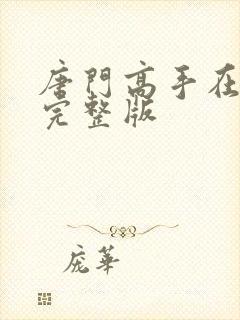 唐門高手在
完整版
庞華